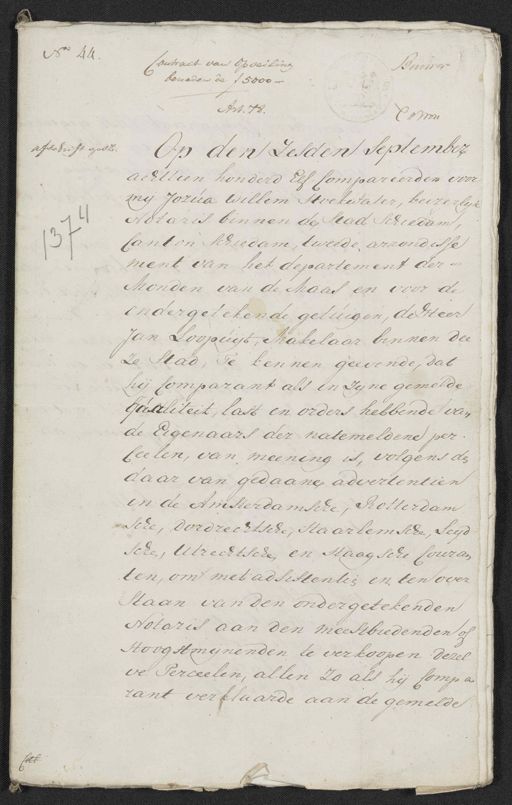 No. 44.
Contract van Opveiling
beneden de f 5000 –
Art. 72.
afschrift gest.
1374
Op den Zesden September
achttien honderd Elf Compareerden voor
my Jozua Willem Stoekwater, keizerlyk
Notaris binnen de Stad Schiedam,
Canton Schiedam, tweede arrondisse
ment van het departement der –
Monden van de Maas en voor de
ondergetekende getuigen, de Heer
Jan Loopuijt, Makelaar binnen dee
ze Stad, Te kennen geevende, dat
hij Comparant als in Zyne gemelde
qualiteit, last en orders hebbende va,
de Eigenaars der natemeldene per
ceelen, van meening is, volgens de
daar van gedaane advertentien
in de Amsterdamsche, Rotterdam
sche, Dordrechtsche, Haarlemsche, Leyd
sche, Utrechtsche en Haagsche Couran
ten, om met adsistentie en ten over
staan van den ondergetekenden
Notaris aan den meestbiedenden of
Hoogstmynenden te verkoopen dezel
ve Perceelen, allen zo als hij Compa
rant verklaarde aan de gemelde